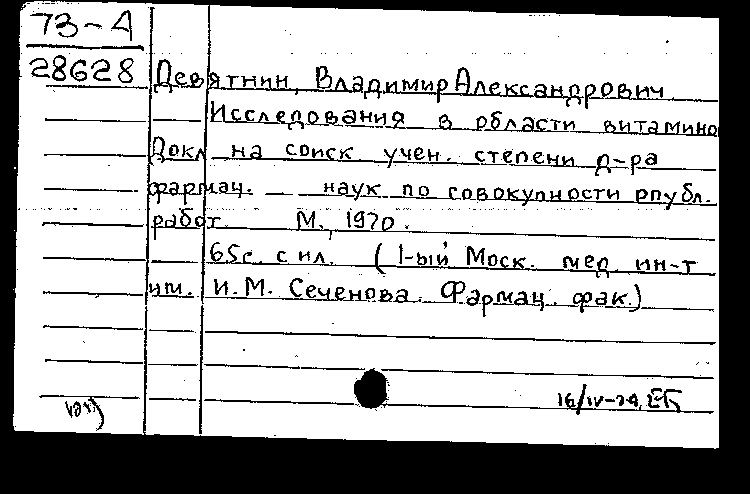 73-А
28628 Девятнин, Владимир Александрович
Исследования в области витамино
Докл на соиск учен. степени д-ра
фармац. наук по совокупности опубл.
работ. М., 1970.
65с. с ил. (1-ый Моск. мед. ин-т
им. И.М. Сеченова. Фармац. фак.)
16/IV-74, ЕБ